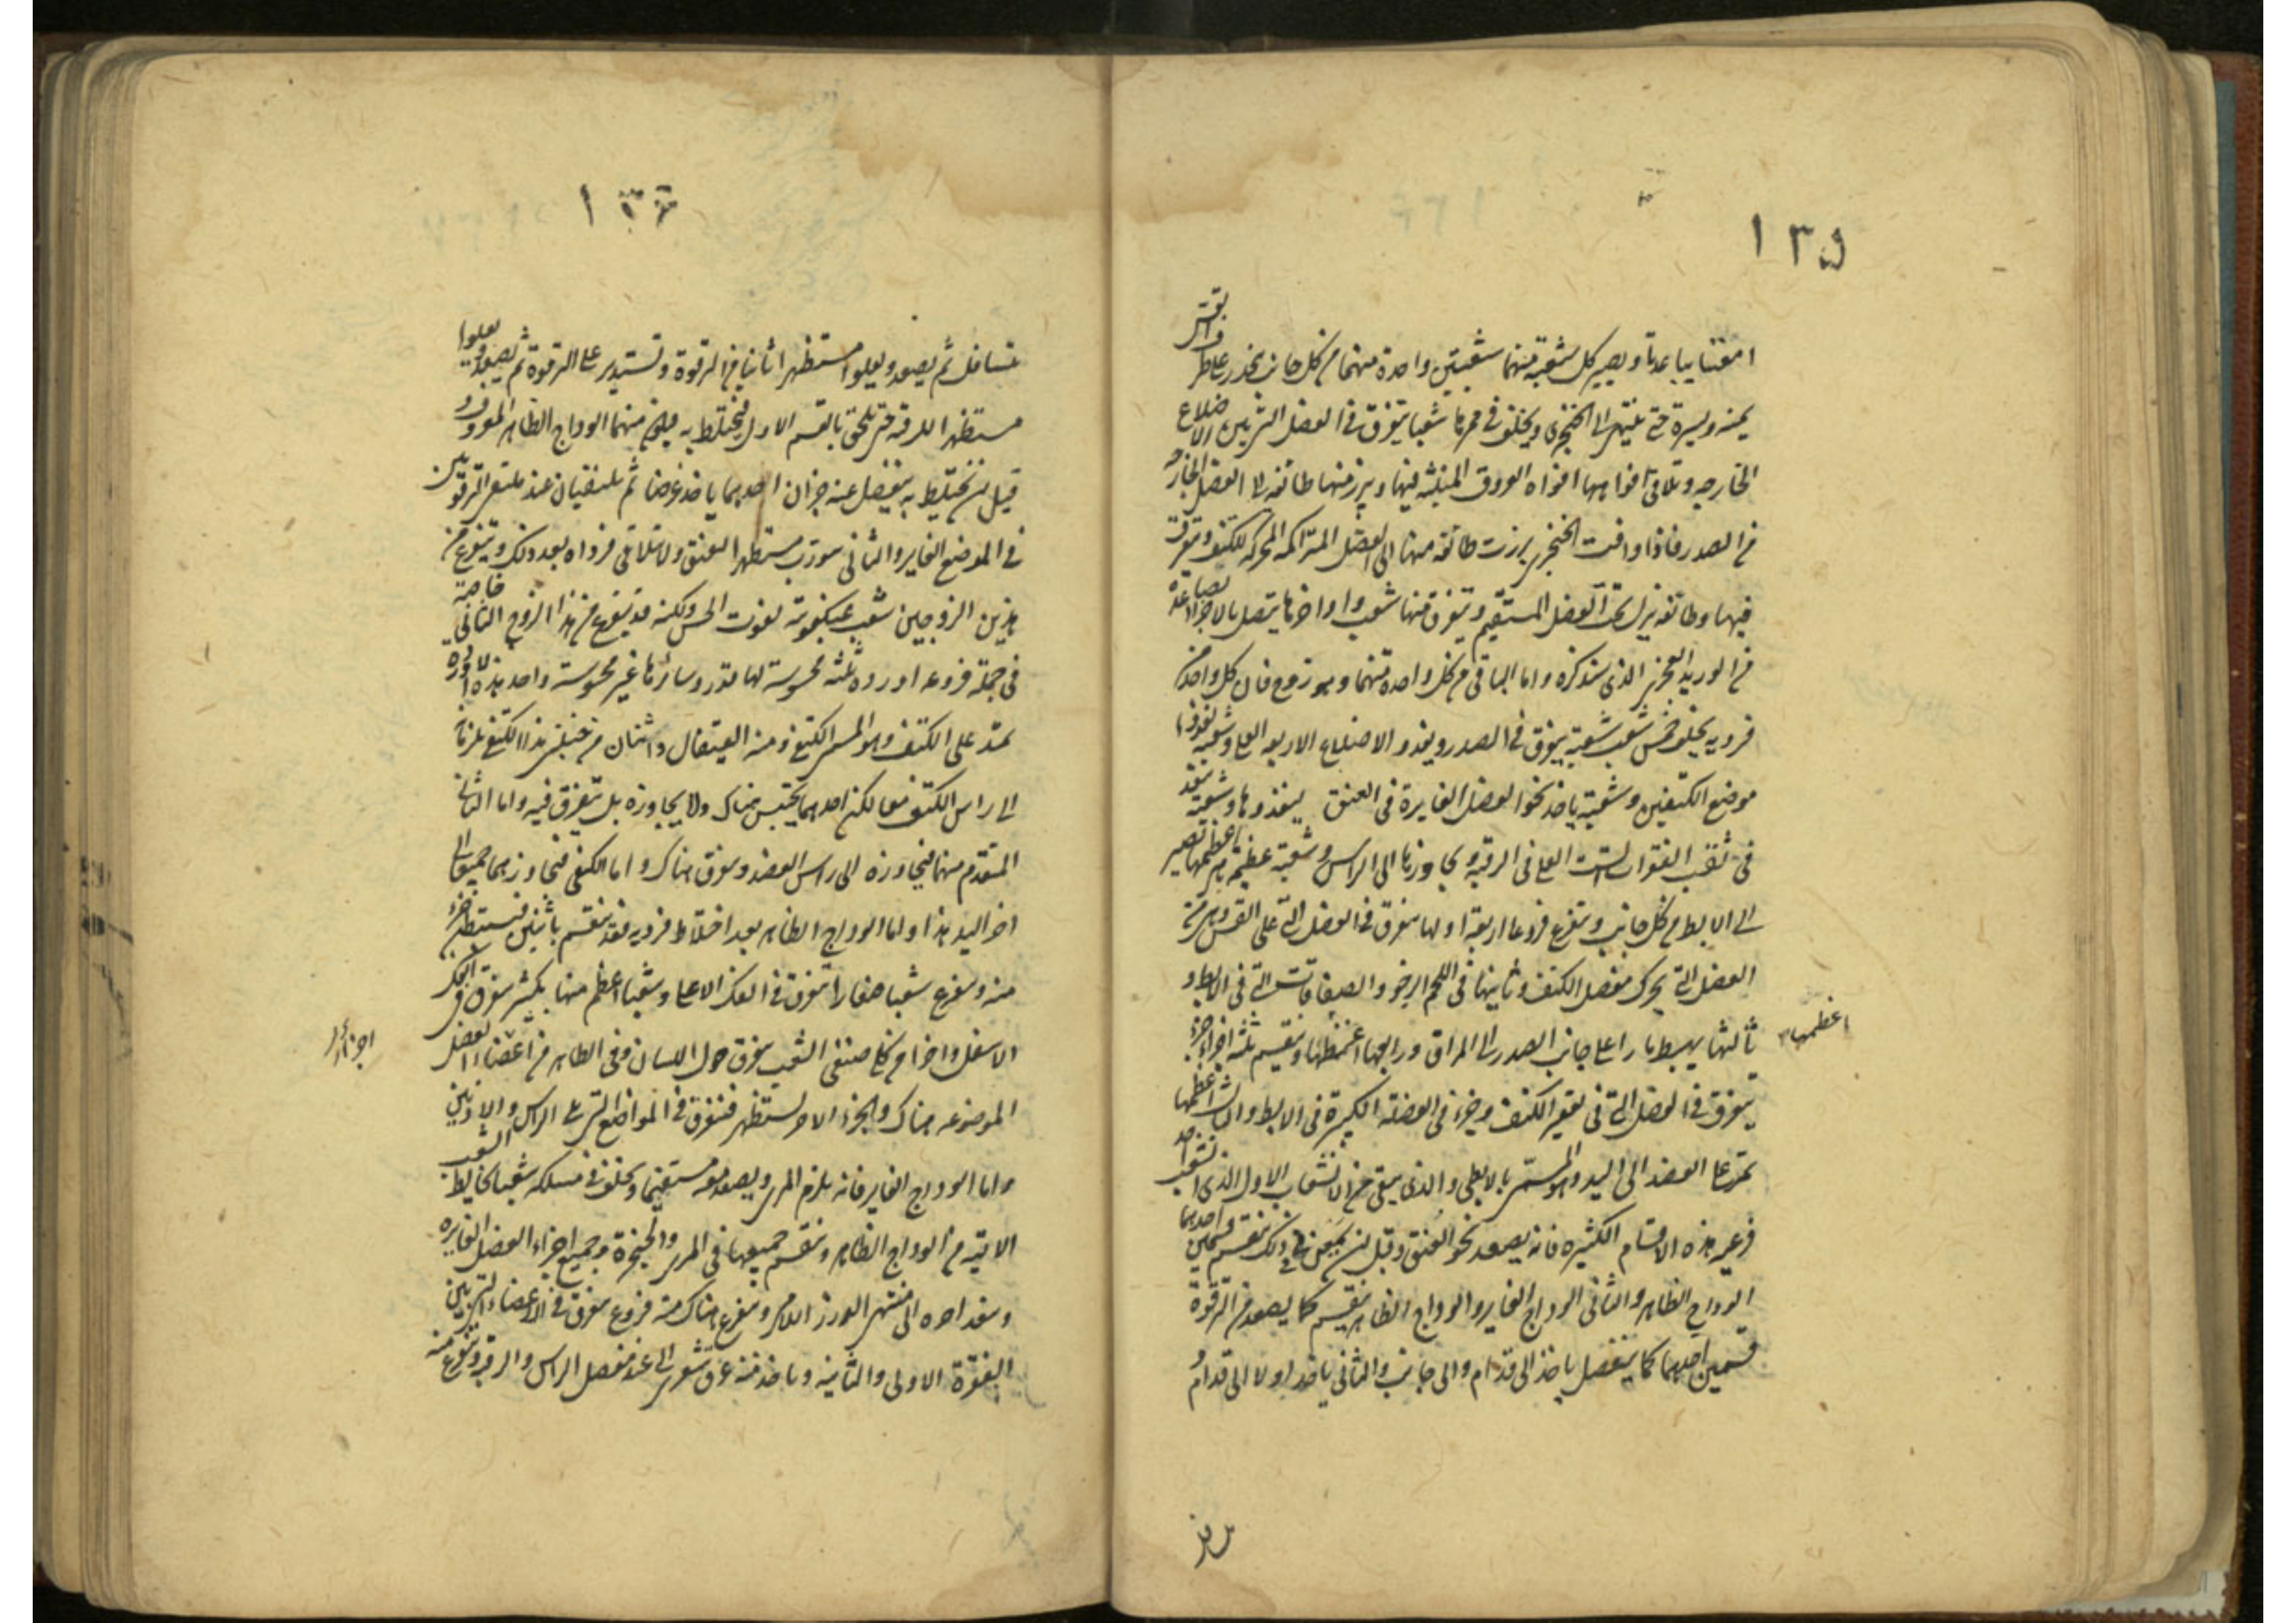 ١٣٥
امعنا تباعدتا ويصير كل شعبة منهما شعبتين واحدة منهما من كل جانب تنحدر على طرف القس
يمنه ويسرة حتى ينتهى الى الخنجرى ويخلف فى ممرها شعبا تتفرق فى العضل التى بين الاضلاع
الخارجه وتلاقى افواهها افواه العروق المنبثه فيها ويبرز منها طائفه الى العضل الخارجه
من الصدر فاذا وافت الخنجرى برزت طائفه منها الى العضل المتراكمه المحركه للكتف وتتفرق
فيها وطائفه تنزل تحت العضل المستقيم وتتفرق منها شعب واواخرها يتصل بالاجزاء الصاعدة
من الوريد العجزى الذى سنذكره واما الباقى من كل واحدة منهما وهو زوج فان كل واحد من
فرديه يخلف خمس شعب شعبة تتفرق فى الصدر ويغذو الاضلاع الاربعه العلى وشعبة تغذو
موضع الكتفين وشعبة ياخذ نحو العضل الغايرة فى العنق ليغذوها وشعبة تنفذ
فى ثقب الفقرات الست العلى فى الرقبة ويجاوزها الى الراس وشعبة عظيمة هى اعظمها تصير
الى الابط من كل جانب ويتفرع فروعا اربعة اولها يتفرق فى العضل التى على القس وهى من
العضل التى يحرك مفصل الكتف وثانيها فى اللحم الرخو والصفاقات التى فى الابط و
ثالثها يهبط مارا على جانب الصدر الى المراق ورابعها اعظمها وينقسم ثلثه اجزاء جزء
اعظمها
يتفرق فى العضل التى فى تقعير الكتف وجزء فى العضلة الكبيرة فى الابط والثالث اعظمها
يمر على العضد الى اليد وهو المسمى بالابطى والذى يبقى من الانشعاب الاول الذى انشعب احد
فرعيه هذه الاقسام الكثيره فانه يصعد نحو العنق وقبل ان يمعن فى ذلك ينقسم قسمين احدهما
الوداج الظاهر والثانى الوداج الغاير والوداج الظاهر ينقسم كما يصعد من الترقوة
قسمين احدهما كما ينفصل ياخذ الى قدام والى جانب والثانى ياخذ اولا الى قدام و
١٣٦
يتسافل ثم يصعد ويعلوا مستظهرا ثانيا من الترقوة وتستدير على الترقوة ثم يصعد ويعلوا
مستظهرا للرقبه حتى يلحق بالقسم الاول فيختلط به فيكون منهما الوداج الظاهر المعروف و
قبل ان يختلط به ينفصل عنه جزان احدهما ياخذ عرضا ثم يلتقيان عند ملتقى الترقوتين
فى الموضع الغاير والثانى يتورب مستظهرا للعنق ولا يتلاقى فرداه بعد ذلك ويتفرع من
هذين الزوجين شعب عنكبوتية تفوت الحس ولكنه قد يتفرع من هذا الزوج الثانى خاصة
فى جملة فروعه اوردة ثلثه محسوسة لها قدر وسائرها غير محسوسة واحد هذه الاوردة
يمتد على الكتف وهو المسمى الكتفى ومنه القيفال واثنان عن جنبتى هذا الكتفى يلزمانه
الى راس الكتف معا لكن احدهما يحتبس هناك ولا يجاوزه بل يتفرق فيه واما الثانى
المتقدم منهما فيجاوزه الى راس العضد ويتفرق هناك واما الكتفى فيجاوزهما جميعا الى
اخر اليد هذا واما الوداج الظاهر بعد اختلاط فرديه فقد ينقسم باثنين فيستبطن جزء
منه ويتفرع شعبا صغارا تتفرق فى الفك الاعلى وشعبا اعظم منها بكثير يتفرق فى الفك
الاسفل واجزاء من كلى صنفى الشعب يتفرق حول اللسان وفى الظاهر من اعضاء العضل
الموضوعه هناك والجزء الاخر يستظهر فيتفرق فى المواضع التى تلى الراس والاذنين
واما الوداج الغاير فانه يلزم المرى ويصعد معه مستقيما ويخلف فى مسلكه شعبا تخالط الشعب
الاتيه من الوداج الظاهر وينقسم جميعها فى المرى والحنجرة وجميع اجزاء العضل الغايره
وينفذ اخره الى منتهى الدرز اللامى ويتفرع هناك منه فروع يتفرق فى الاعضاء التى بين
الفقرة الاولى والثانيه وياخذ منه عرق شعرى الى عند مفصل الراس والرقبة ويتفرع منه